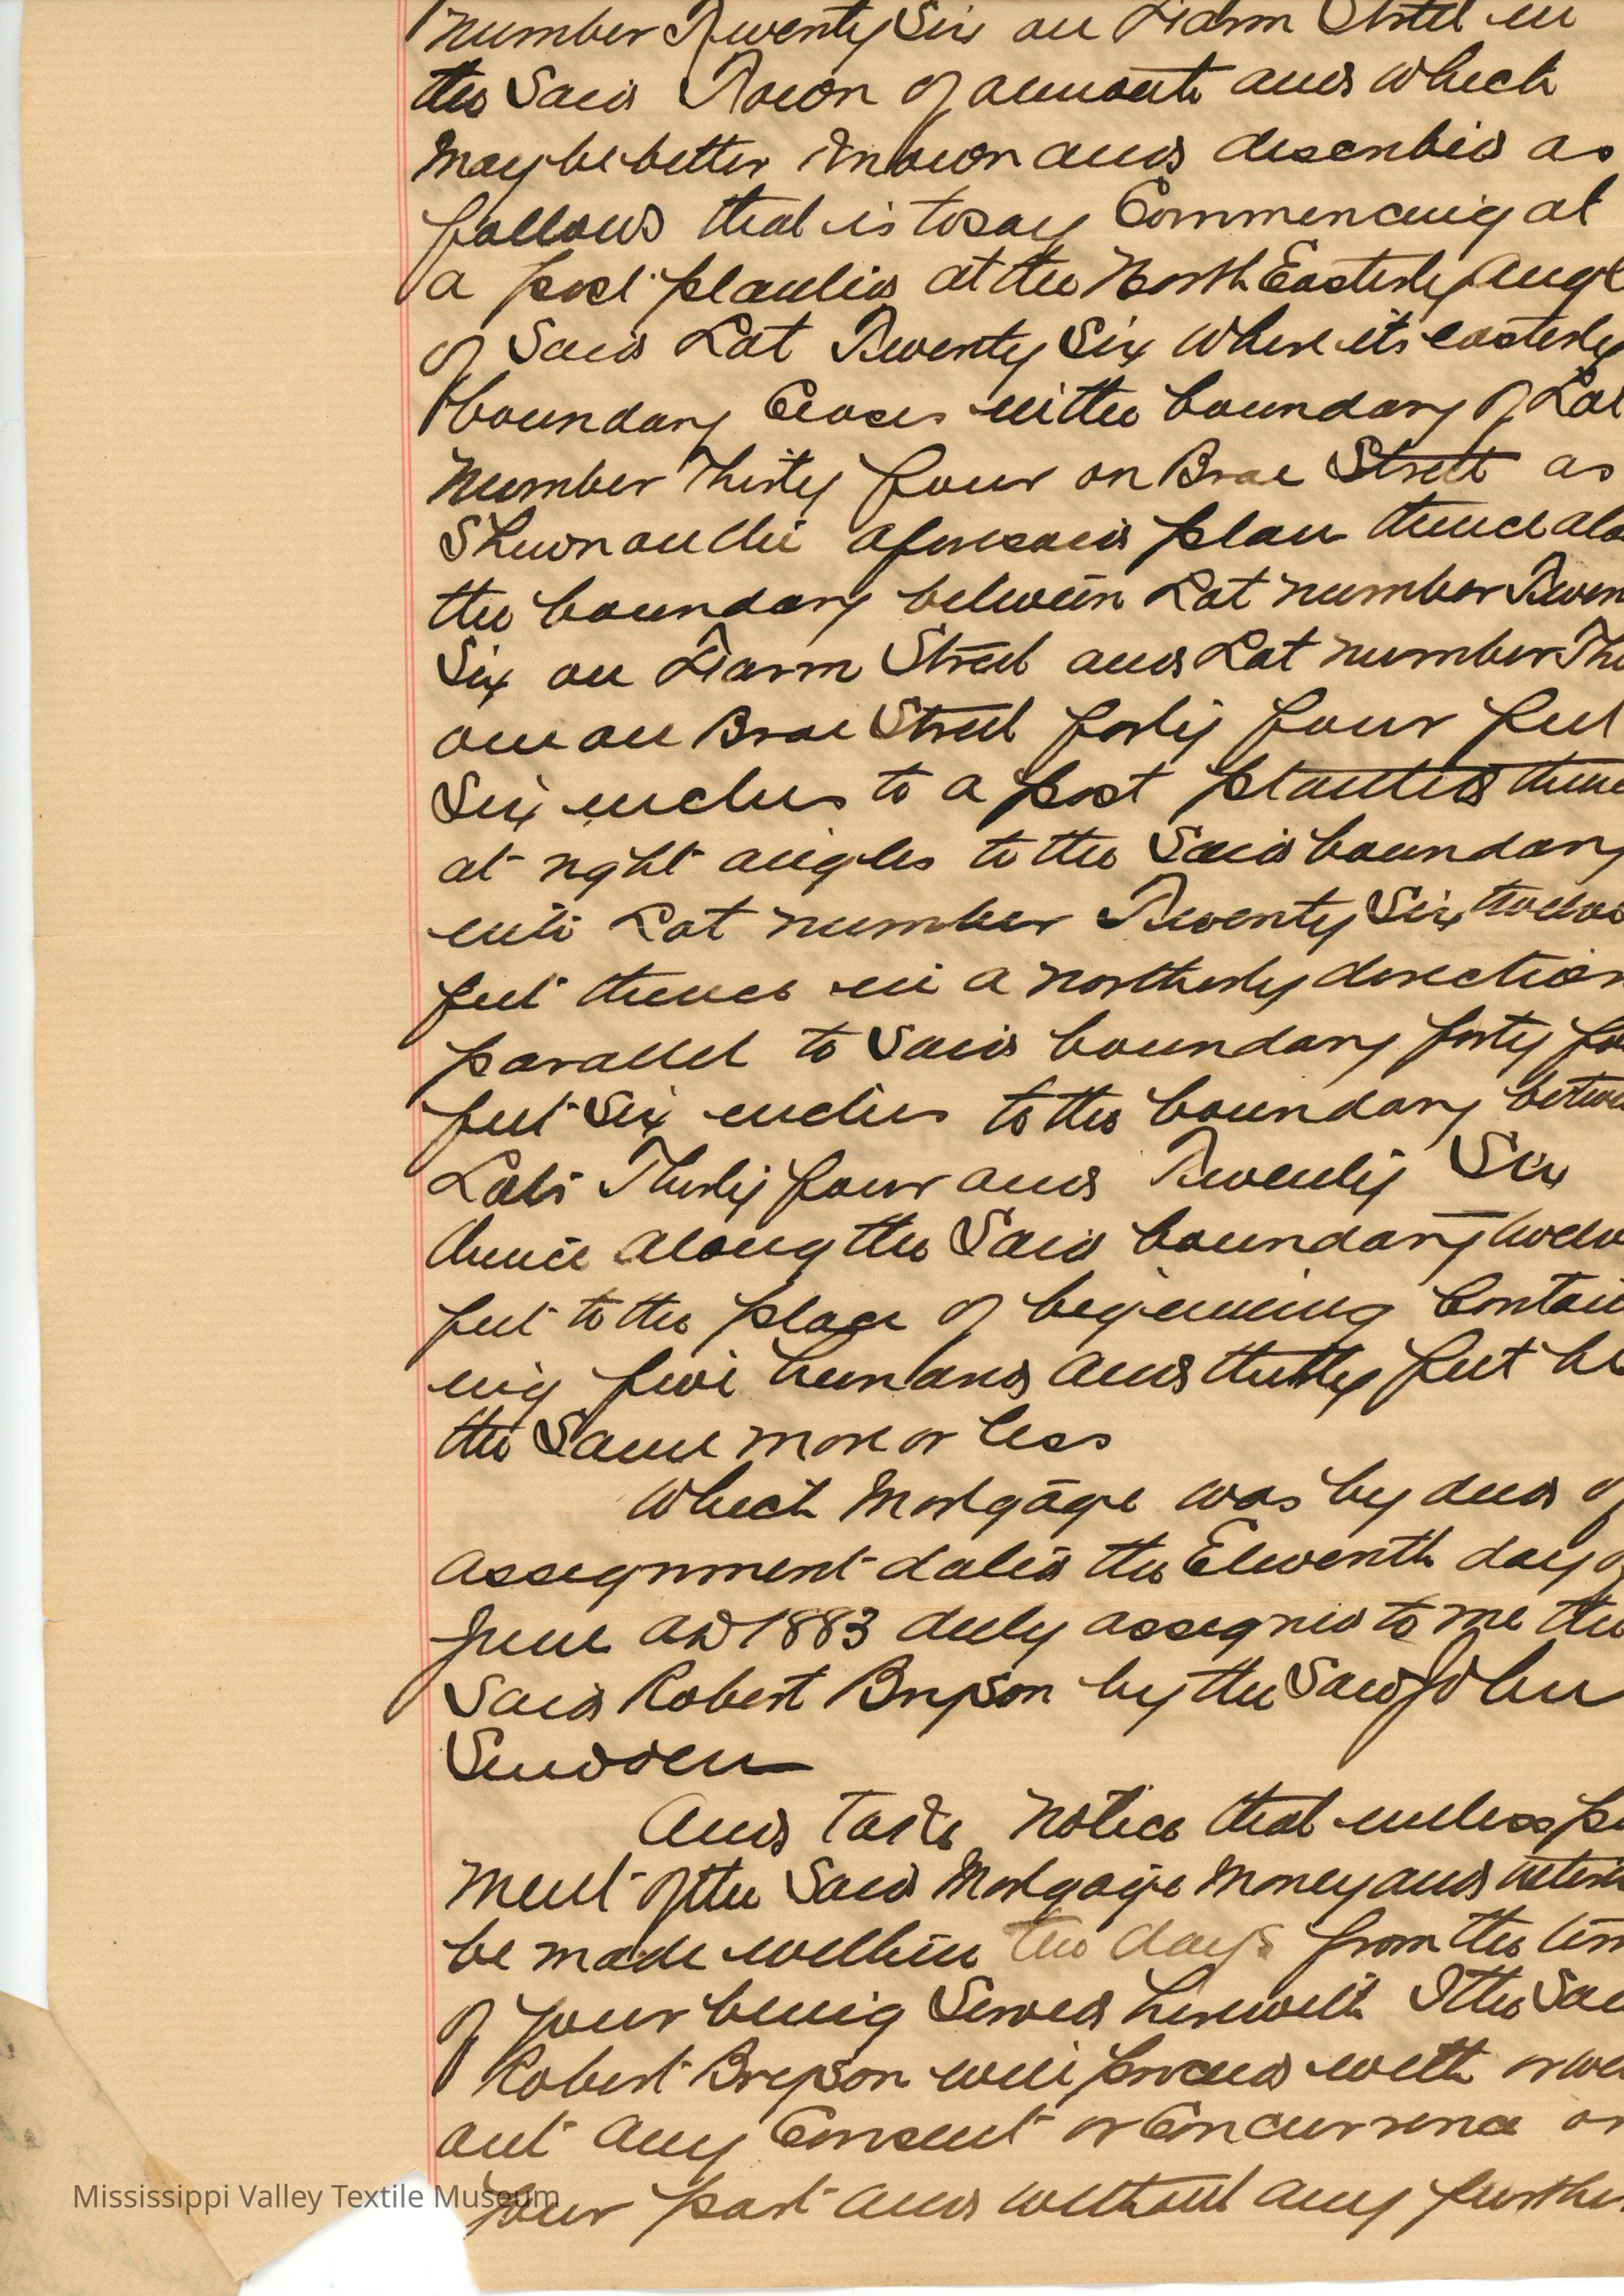 number Twenty Six on Farm Street in
the Said Town of Almonte and which
may be better Known and described as
follows that is to say Commencing at
a post planted at the North Easterly Angl
of Said Lot Twenty Six where its easterly
boundary Closes with the boundary of Lot
number Thirty four on Brae Street as
Shewn on the aforesaid plan thence alo
the boundary between Lot number Twen
Six on Farm Street and Lot number Thi
one on Brae Street forty four feet
Six inches to a post planted thence
at right angles to the Said boundary
into Lot number Twenty Six twelve
feet thence in a northerly direction
parallel to Said boundary forty fo
feet Six inches to the boundary betwe
Lots Thirty four and Twenty Six
thence along the Said boundary twelve
feet to the place of beginning Contain
ing five hundred and thirty feet be
the Same more or less
Which Mortgage was by deed of
assignment dated the Eleventh day of
June AD 1883 duly assigned to me the
Said Robert Bryson by the Said John
Snedden
And Take Notice that unless pa
ment of the Said Mortgage Money and intere
be made within ten days from the tim
of your being Served herewith I the Sai
Robert Bryson will proceed with or wi
out any Consent or Concurrence on
your part and without any furthe
Mississippi Valley Textile Museum